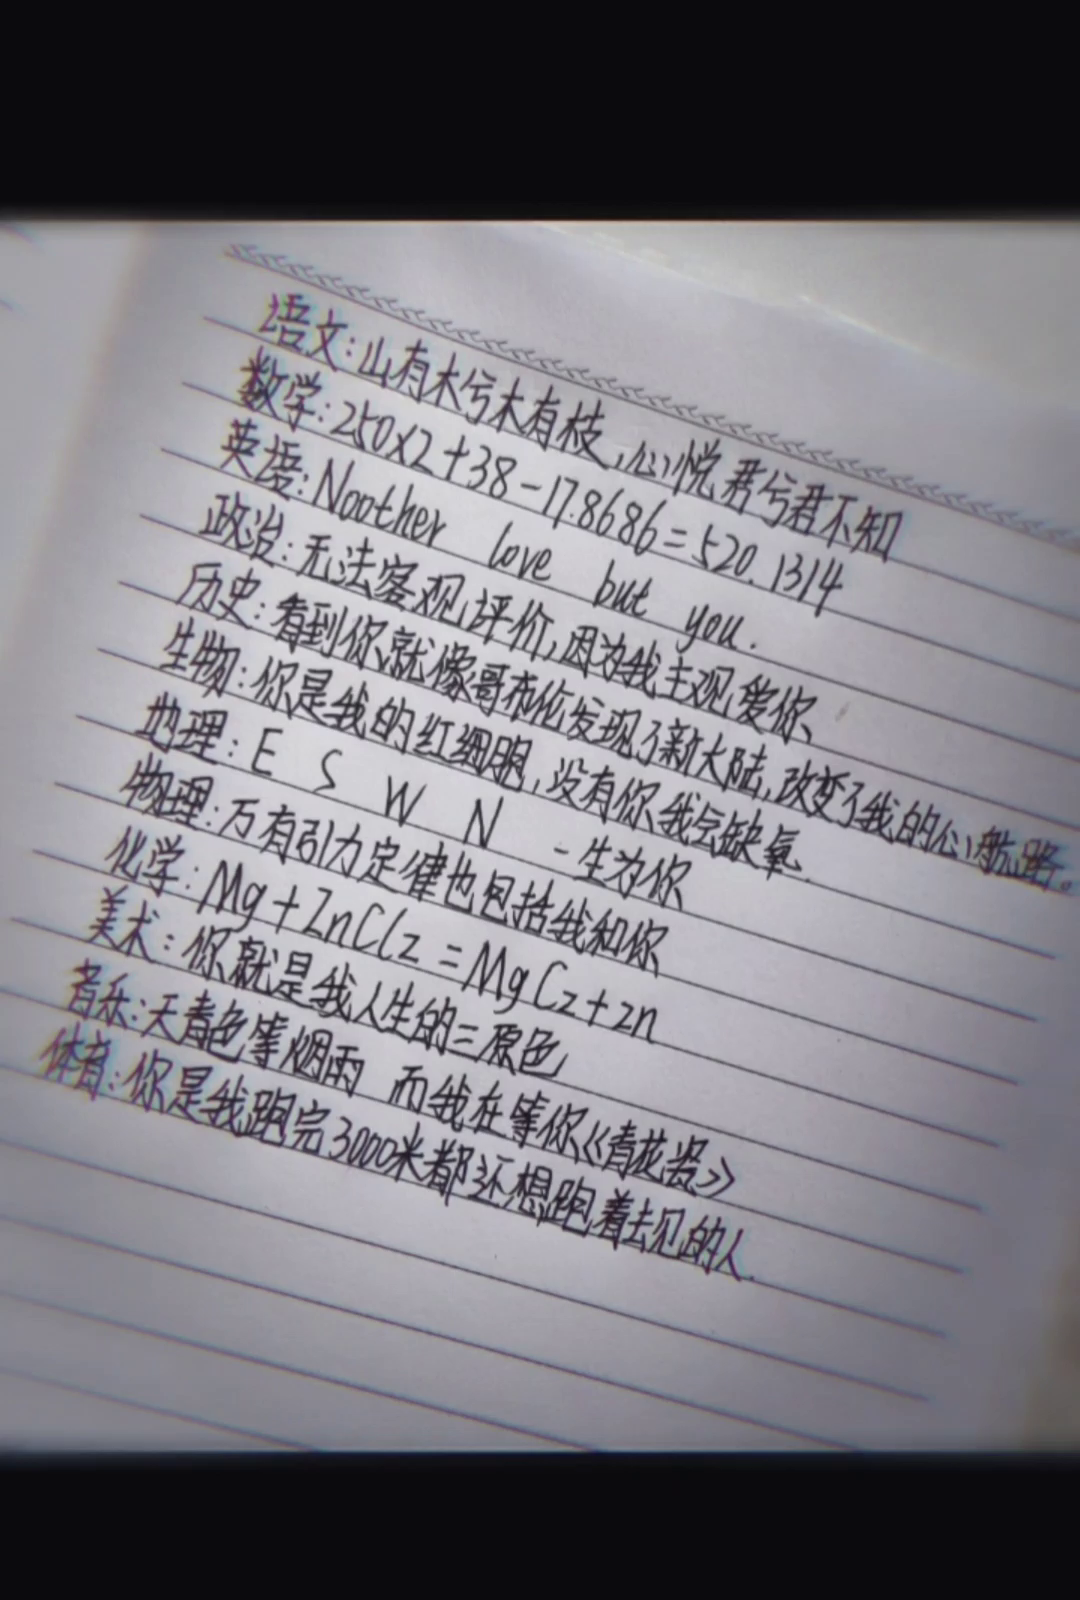 语文:山有木兮木有枝,心悦君兮君不知
数学:250×2+38-17.8686=520.1314
英语:Noother love but you.
政治:无法客观评价,因为我主观爱你
历史:看到你就像哥布伦发现了新大陆,改变了我的心航路。
生物:你是我的红细胞,没有你我会缺氧.
地理:E S W N -生为你
物理:万有引力定律也包括我和你
化学:Mg+ZnCl2=MgC2+zn
美术:你就是我人生的三原色
音乐:天青色等烟雨 而我在等你《青花瓷》
体育:你是我跑完3000米都还想跑着去见的人.